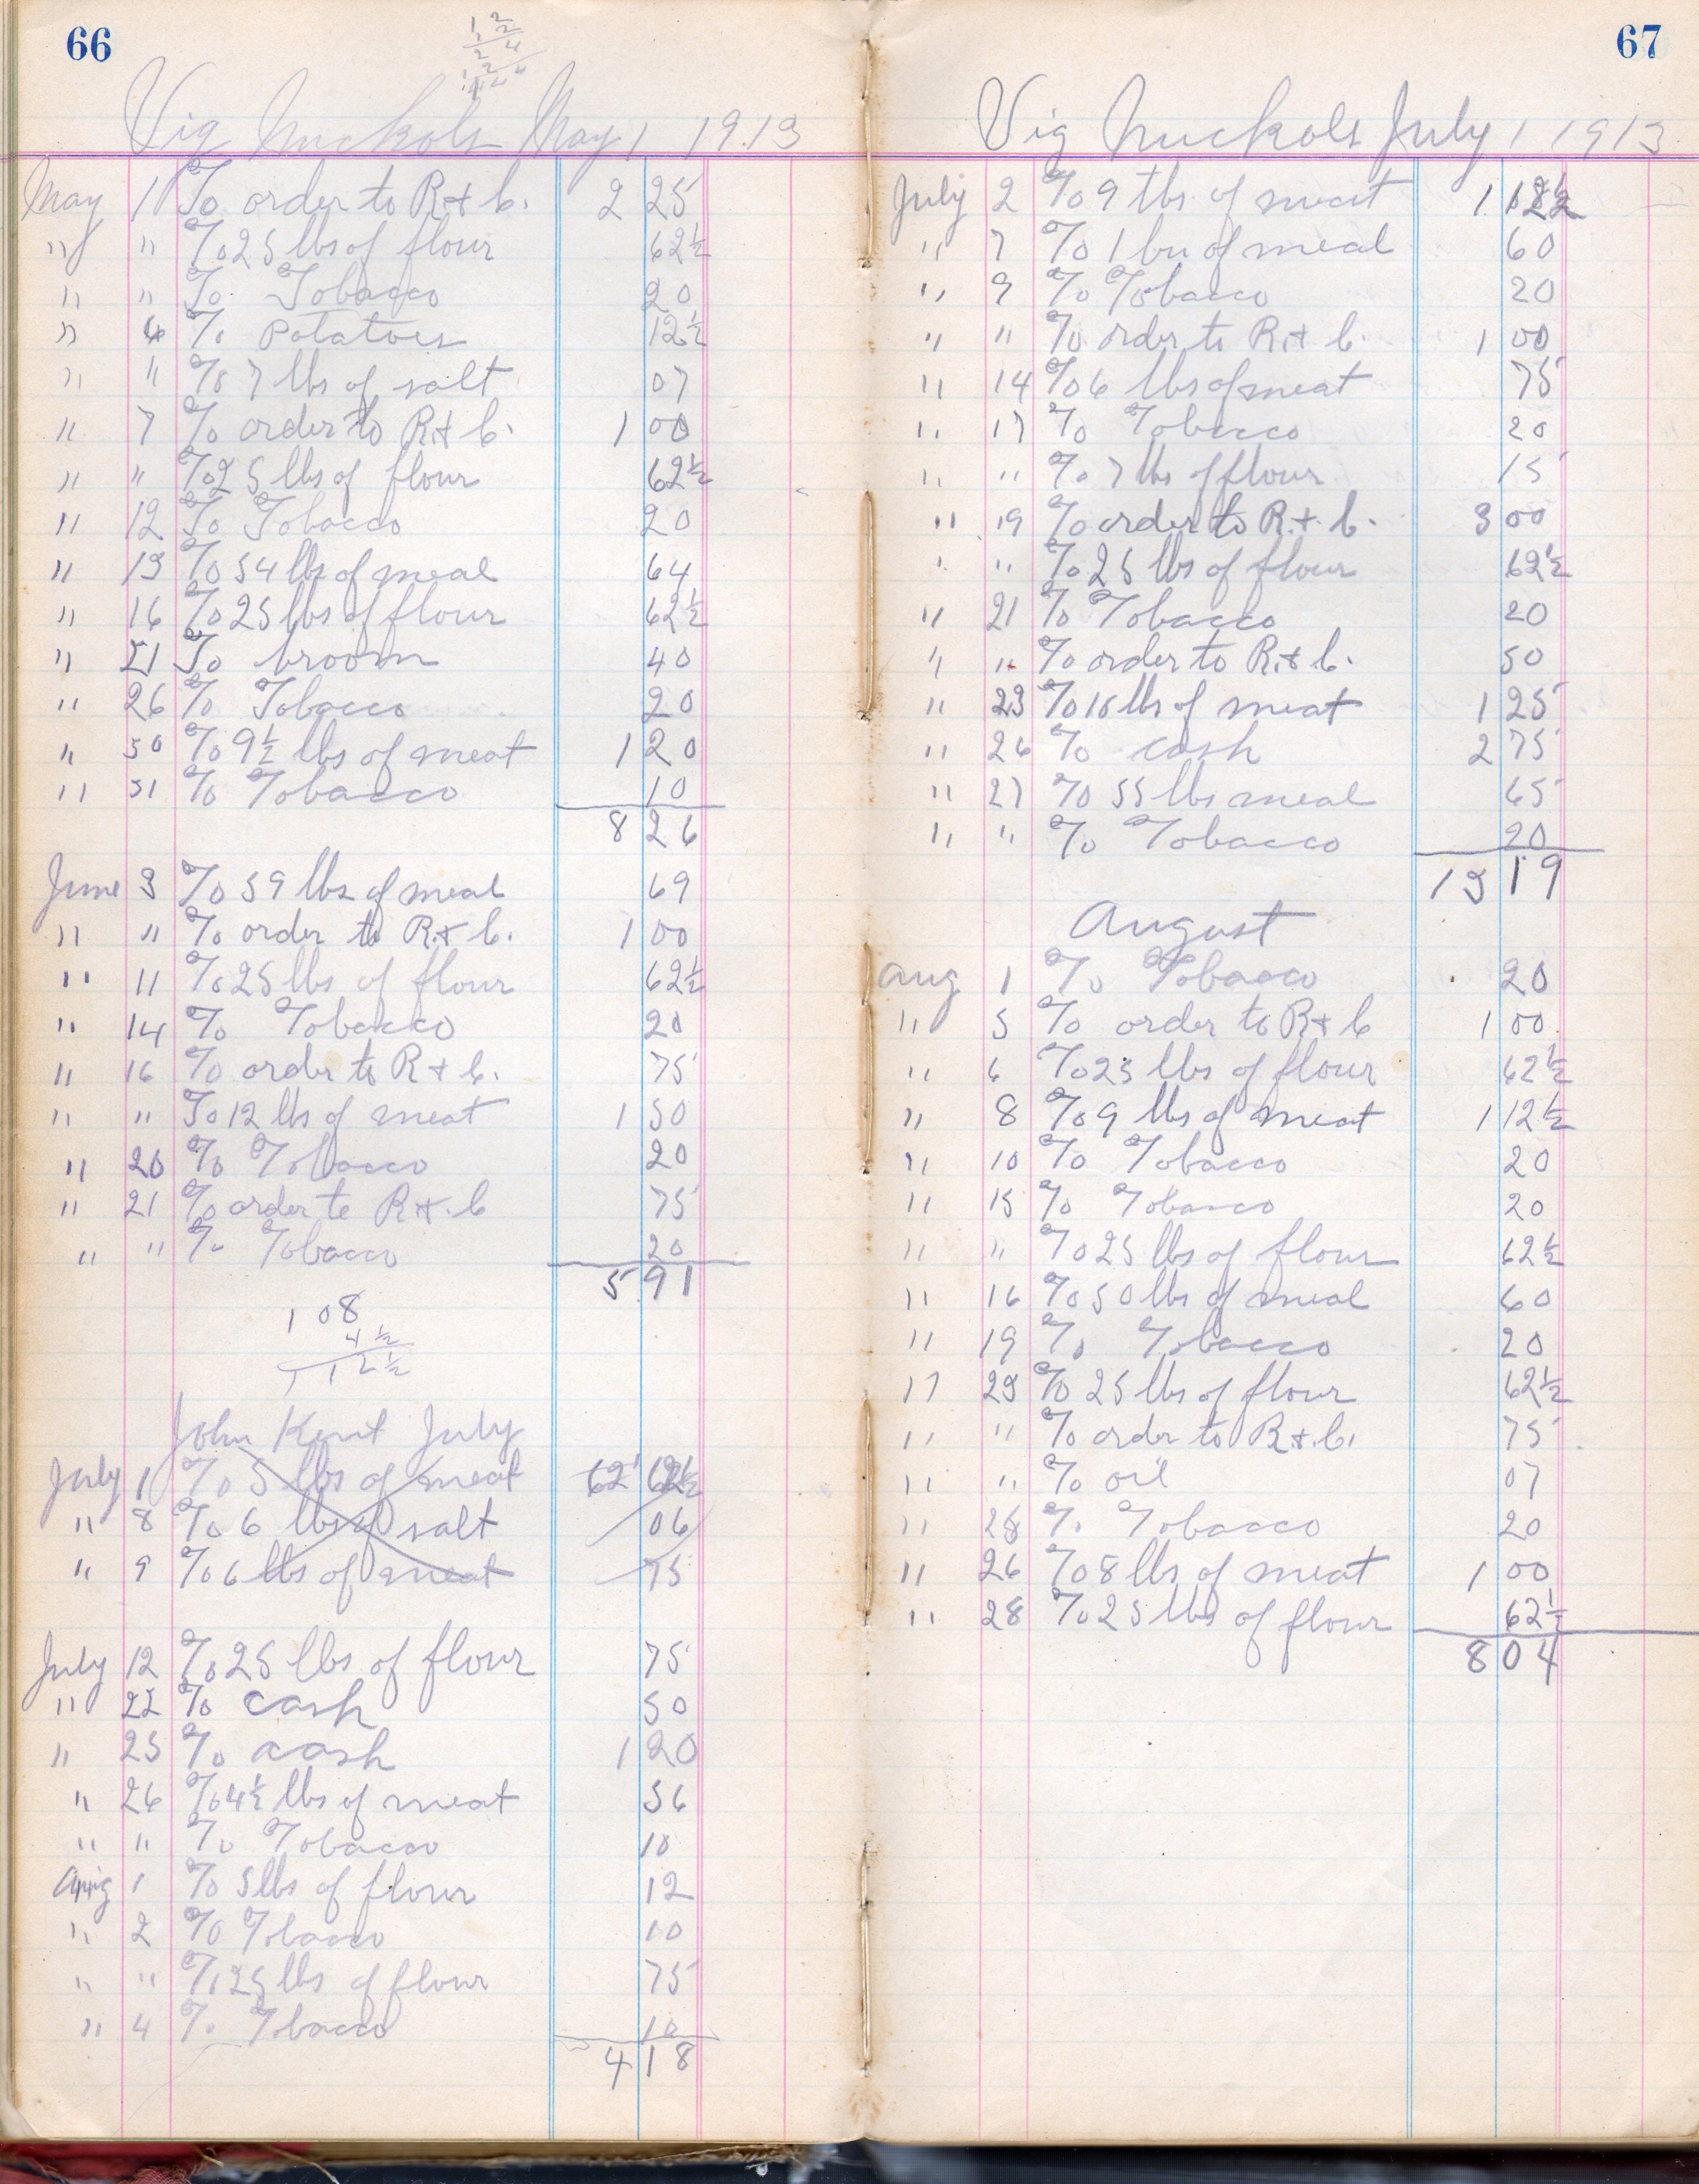 66
Vig Nuckols May 1 1913
May 1 To order to R + C. 2 25
" " To 25 lbs of flour 62½
" " To Tobacco 20
" 4 To Potatoes 12½
" " To 7 lbs of salt 07
" 7 To order to R + C. 1 00
" " To 25 lbs of flour 62½
" 12 To Tobacco 20
" 13 To 54 lbs of meal 64
" 16 To 25 lbs of flour 62½
" 21 To broom 40
" 26 To Tobacco 20
" 30 To 9½ lbs of meat 1 20
" 31 To Tobacco 10
8 26
June 3 To 59 lbs of meal 69
" " To order to R + C. 1 00
" 11 To 25 lbs of flour 62½
" 14 To Tobacco 20
" 16 To order to R + C. 75
" " To 12 lbs of meat 1 50
" 20 To Tobacco 20
" 21 To order to R + C 75
" " To Tobacco 20
5 91
1 08
4½
1 12½
John Kent July
July 1 To 5 lbs of meat 62 62½
" 8 To 6 lbs of salt 06
" 9 To 6 lbs of meat 75
July 12 To 25 lbs of flour 75
" 22 To cash 50
" 25 To cash 1 20
" 26 To 4½ lbs of meat 56
" " To Tobacco 10
Aug 1 To 5 lbs of flour 12
" 2 To Tobacco 10
" " To 25 lbs of flour 75
" 4 To Tobacco 10
4 18
67
Vig Nuckols July 1 1913
July 2 To 9 lbs of meat 1 12½
" 7 To 1 bu of meal 60
" 9 To Tobacco 20
" " To order to R + C. 1 00
" 14 To 6 lbs of meat 75
" 17 To Tobacco 20
" " To 7 lbs of flour 15
" 19 To order to R. + C. 3 00
" " To 25 lbs of flour 62½
" 21 To Tobacco 20
" " To order to R. + C. 50
" 23 To 10 lbs of meat 1 25
" 26 To cash 2 75
" 27 To 55 lbs meal 65
" " To Tobacco 20
13 19
August
Aug 1 To Tobacco 20
" 5 To order to R + C 1 00
" 6 To 25 lbs of flour 62½
" 8 To 9 lbs of meat 1 12½
" 10 To Tobacco 20
" 15 To Tobacco 20
" " To 25 lbs of flour 62½
" 16 To 50 lbs of meal 60
" 19 To Tobacco 20
" 23 To 25 lbs of flour 62½
" " To order to R. + C. 75
" " To oil 07
" 28 To Tobacco 20
" 26 To 8 lbs of meat 1 00
" 28 To 25 lbs of flour 62½
8 04